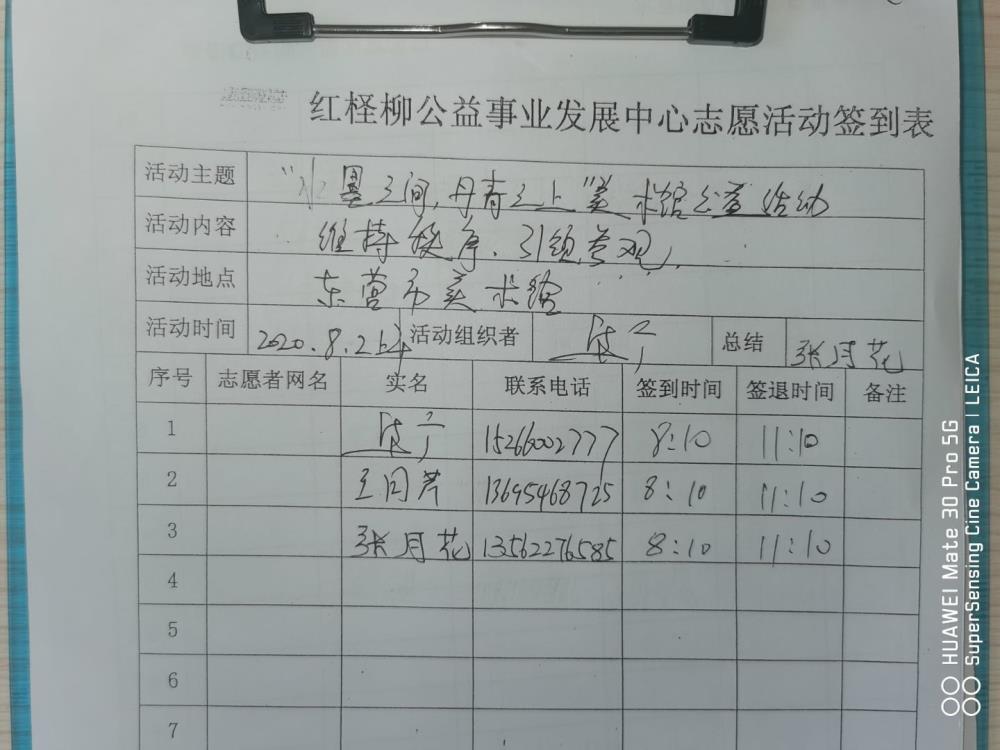 红柽柳公益事业发展中心志愿活动签到表
活动主题 "水墨之间,丹青之上"美术馆公益活动
活动内容 维持秩序、引领参观
活动地点 东营市美术馆
活动时间 2020.8.2上午 活动组织者 总结 张月花
序号 志愿者网名 实名 联系电话 签到时间 签退时间 备注
1 15266002777 8:10 11:10
2 王同芹 13695468725 8:10 11:10
3 张月花 13562276585 8:10 11:10
4
5
6
7
HUAWEI Mate 30 Pro 5G
SuperSensing Cine Camera | LEICA